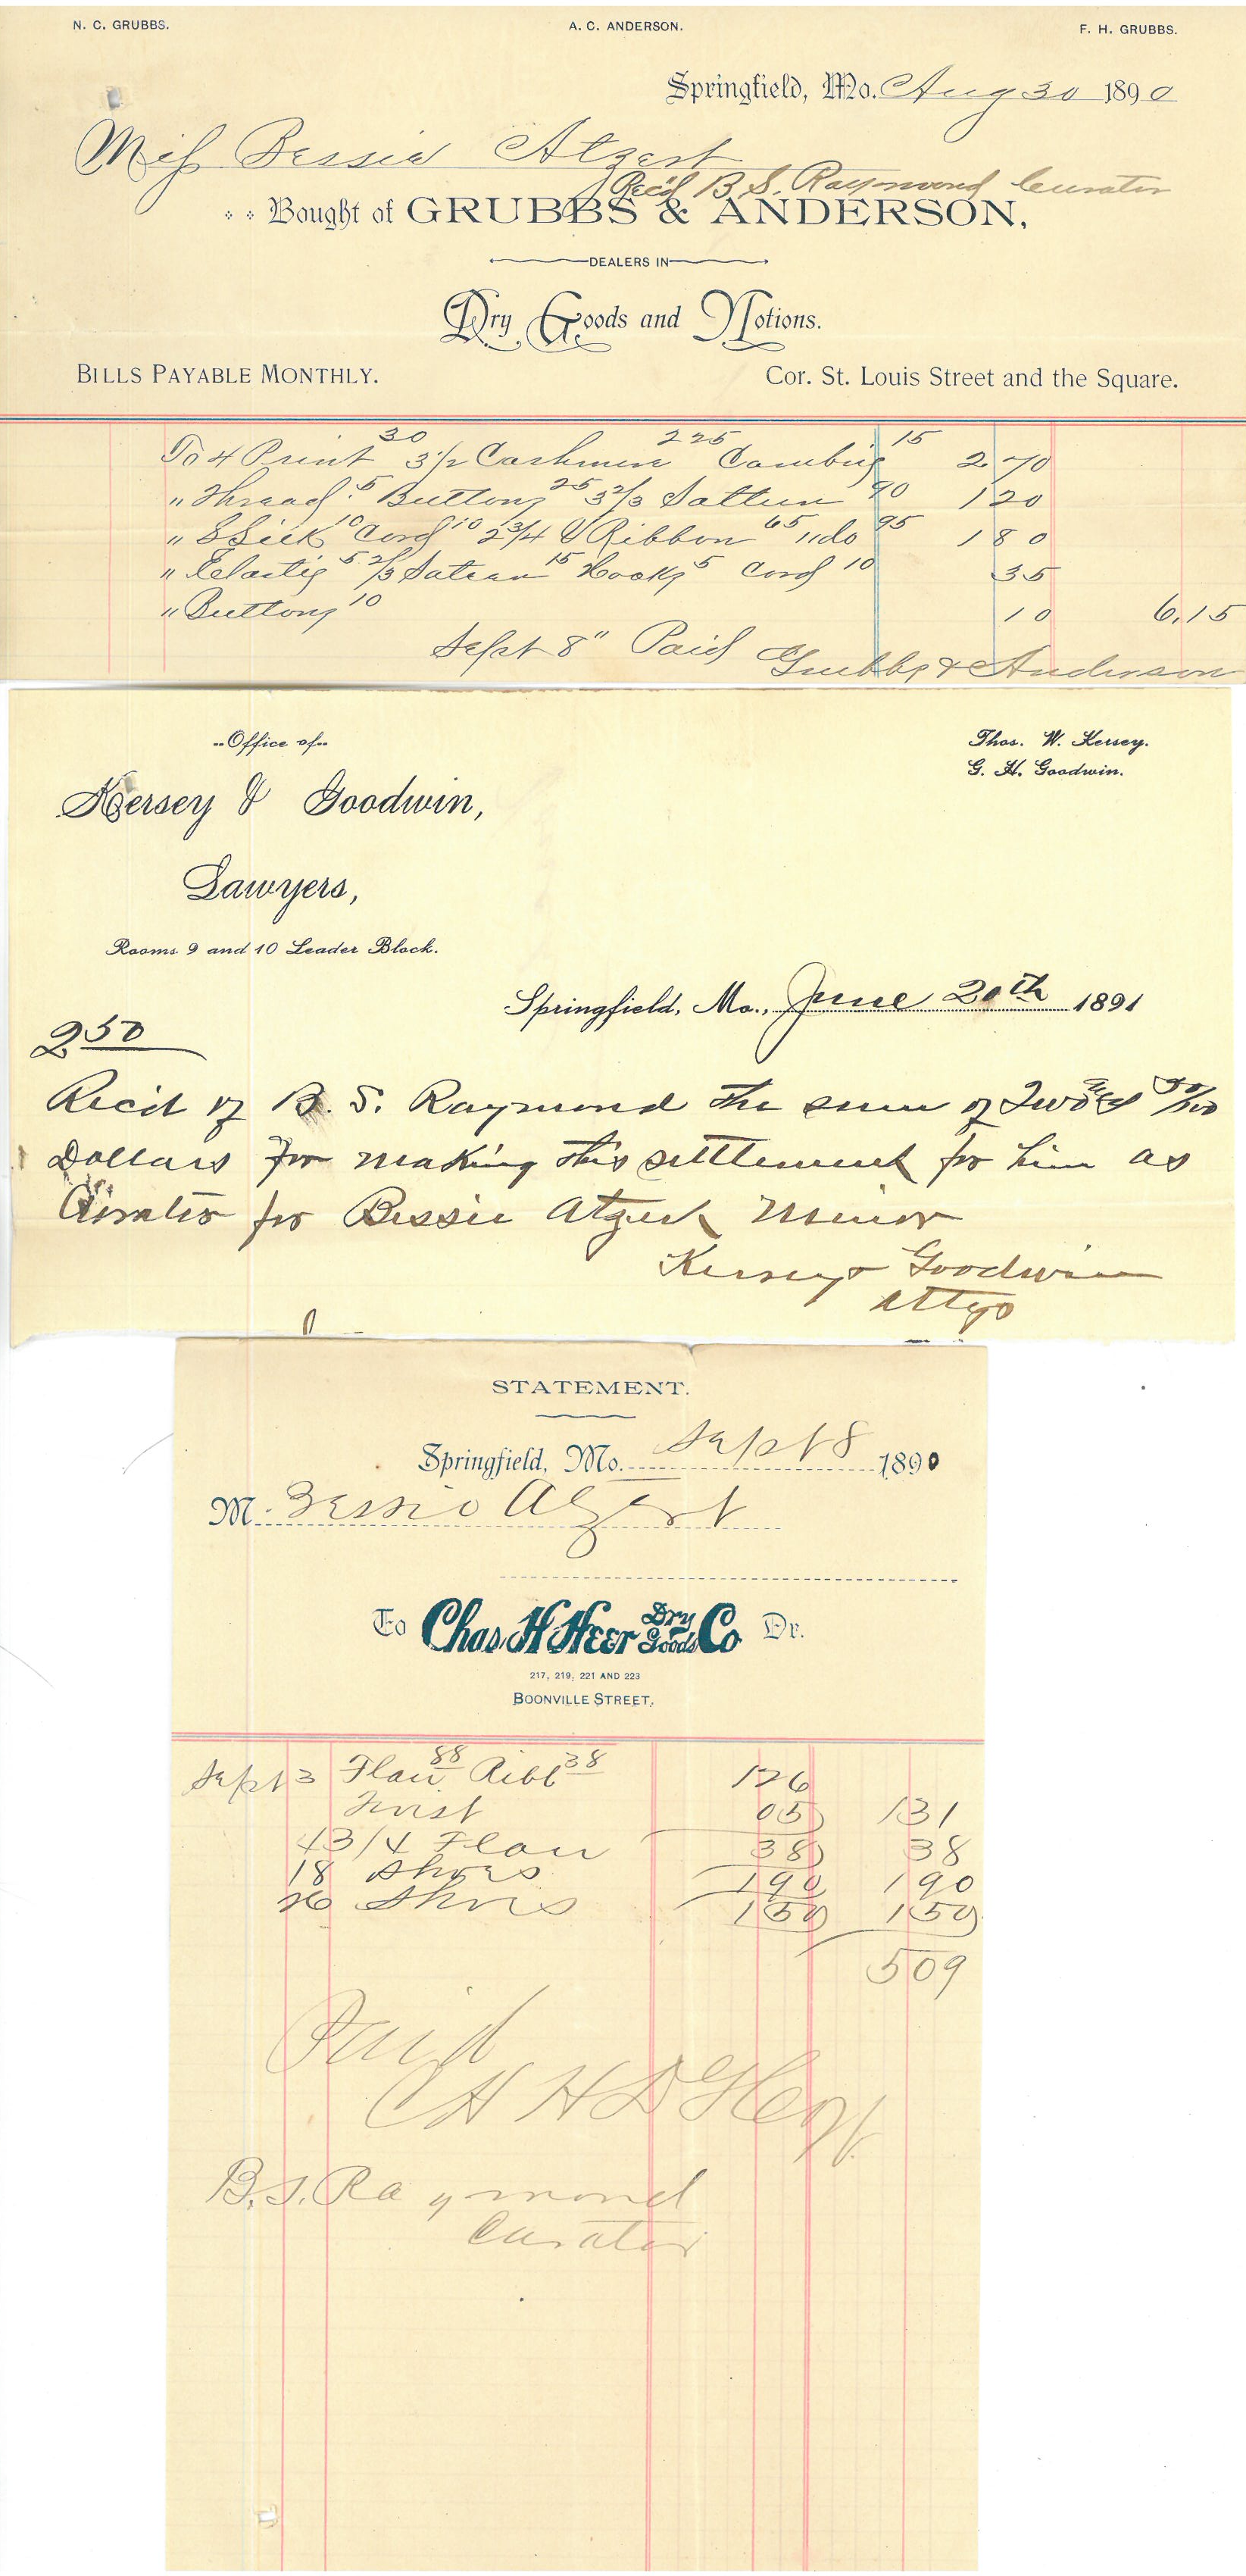 N. C. GRUBBS. A. C. ANDERSON. F. H. GRUBBS.
Springfield, Mo. Aug 30 1890
Miss Bessie Atzert
Rec'd B. S. Raymond Curator
Bought of GRUBBS & ANDERSON,
DEALERS IN
Dry Goods and Notions.
BILLS PAYABLE MONTHLY. Cor. St. Louis Street and the Square.
To 4 Print 30 3 1/2 Cashmere 225 Cambric 15 2.70
" Thread 5 Buttons 25 3 2/3 Satteen 90 120
" Silk 10 Cord 10 2 3/4 Ribbon 65 " do 95 180
" Elastic 5 2/3 Sateen 15 Hooks 5 Cord 10 35
" Buttons 10 10 6.15
Sept 8" Paid Grubbs & Anderson
Office of
Thos. W. Kersey.
G. H. Goodwin.
Kersey & Goodwin,
Lawyers,
Rooms 9 and 10 Leader Block.
Springfield, Mo., June 20th 1891
2 50
Recd of B. S. Raymond the sum of Two & 50/100
Dollars for making this settlement for him as
Curator for Bessie Atzert Minor
Kersey & Goodwin
Attys
STATEMENT.
Springfield, Mo. Sept 8 1890
M. Bessie Atzert
To Chas H Heer Dry Goods Co Dr.
217, 219, 221 AND 223
BOONVILLE STREET.
Sept 3 Flan 88 Ribb 38 126
Twist 05 131
4 3/4 Flan 38 38
18 Shoes 190 190
Shoes 150 150
509
Paid
C H H D G
B. S. Raymond
Curator